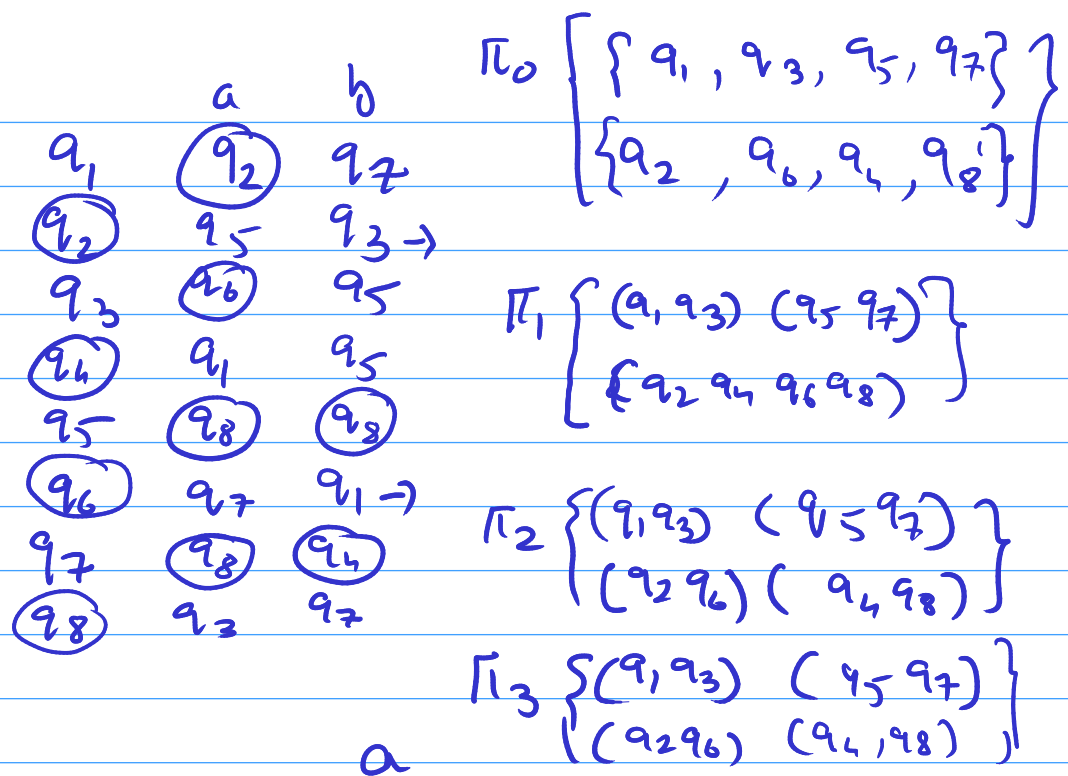 a b
q1 q2 q7
q2 q5 q3 →
q3 q6 q5
q4 q1 q5
q5 q8 q8
q6 q7 q1 →
q7 q8 q4
q8 q3 q7
a
Π0 [ { q1 , q3 , q5 , q7 }
{ q2 , q6 , q4 , q8 } }
Π1 { (q1 q3) (q5 q7)
( q2 q4 q6 q8 ) }
Π2 { (q1 q3) ( q5 q7 )
(q2 q6) ( q4 q8 ) }
Π3 { (q1 q3) ( q5 q7 )
( q2 q6 ) (q4 , q8 ) }